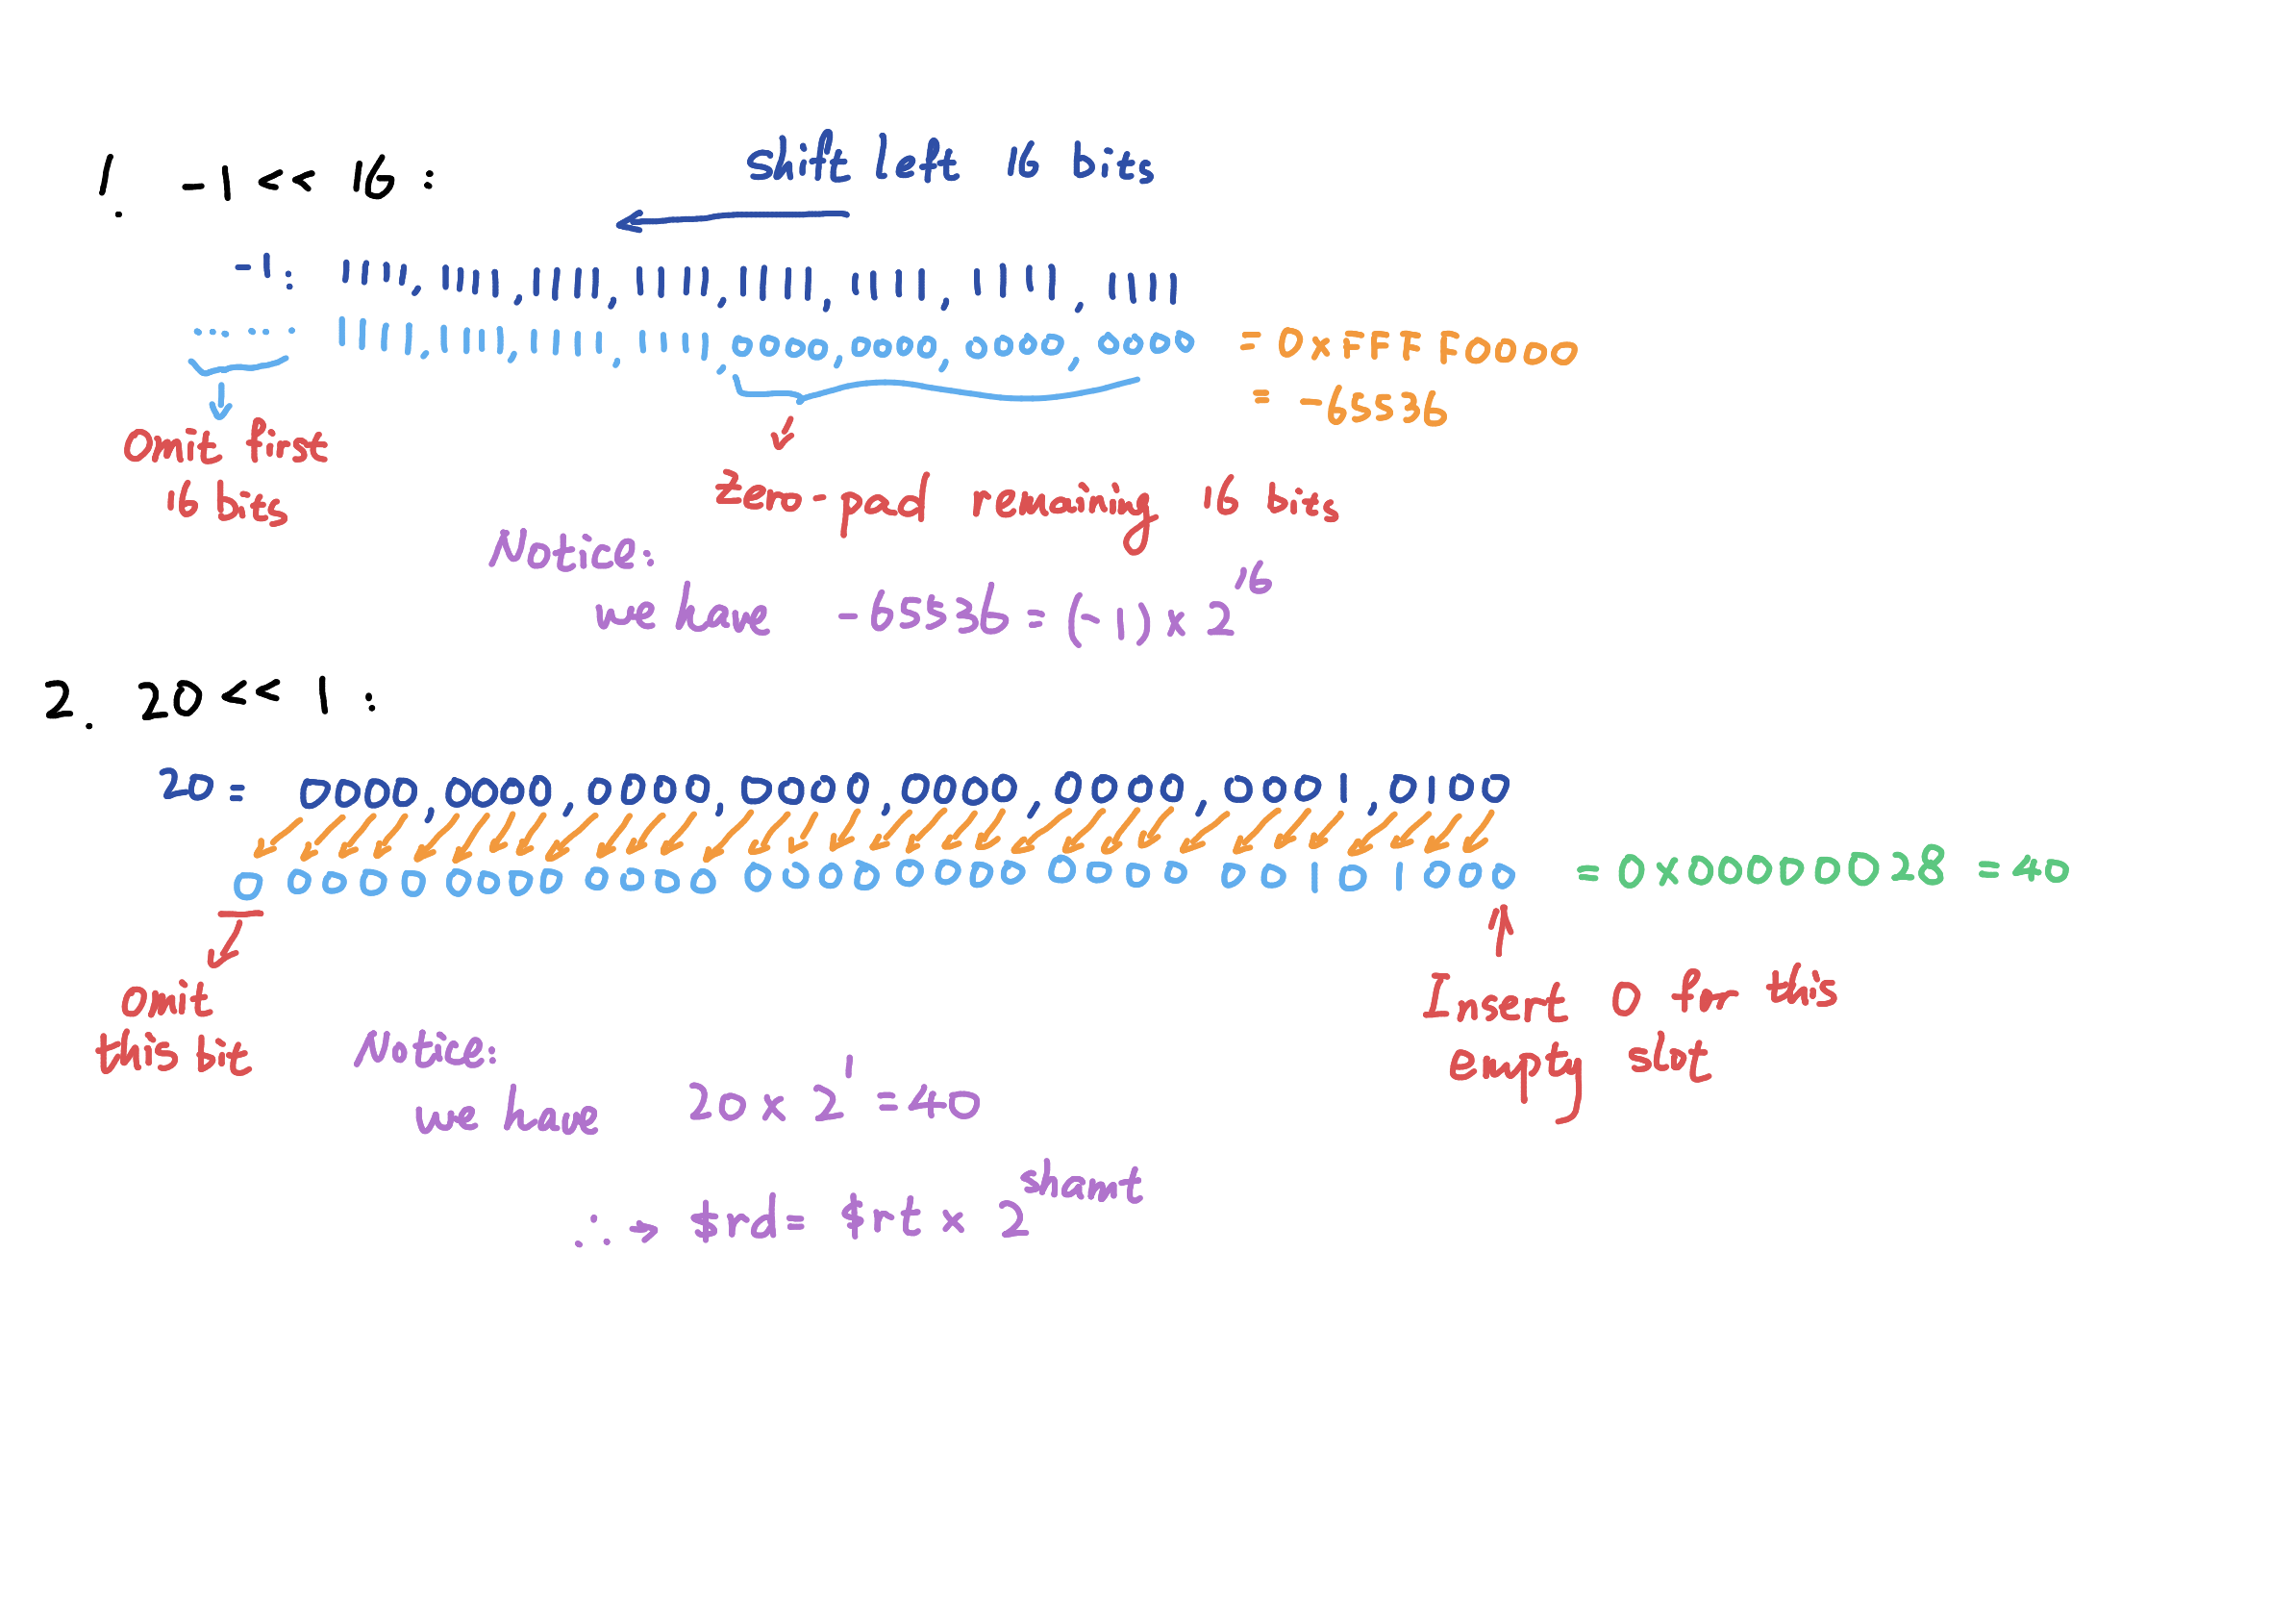 1. -1 << 16 :
shift left 16 bits
-1: 1111,1111,1111,1111,1111,1111,1111,1111
...... 1111,1111,1111,1111,0000,0000,0000,0000 = 0xFFFF0000
= -65536
Omit first
16 bits
zero-pad remaining 16 bits
Notice:
we have -65536 = (-1) x 2^16
2. 20 << 1 :
20 = 0000,0000,0000,0000,0000,0000,0001,0100
0 0000 0000 0000 0000 0000 0000 0010 1000 = 0x00000028 = 40
omit
this bit
Insert 0 for this
empty slot
Notice:
we have 20 x 2^1 = 40
∴ → $rd = $rt x 2^shamt